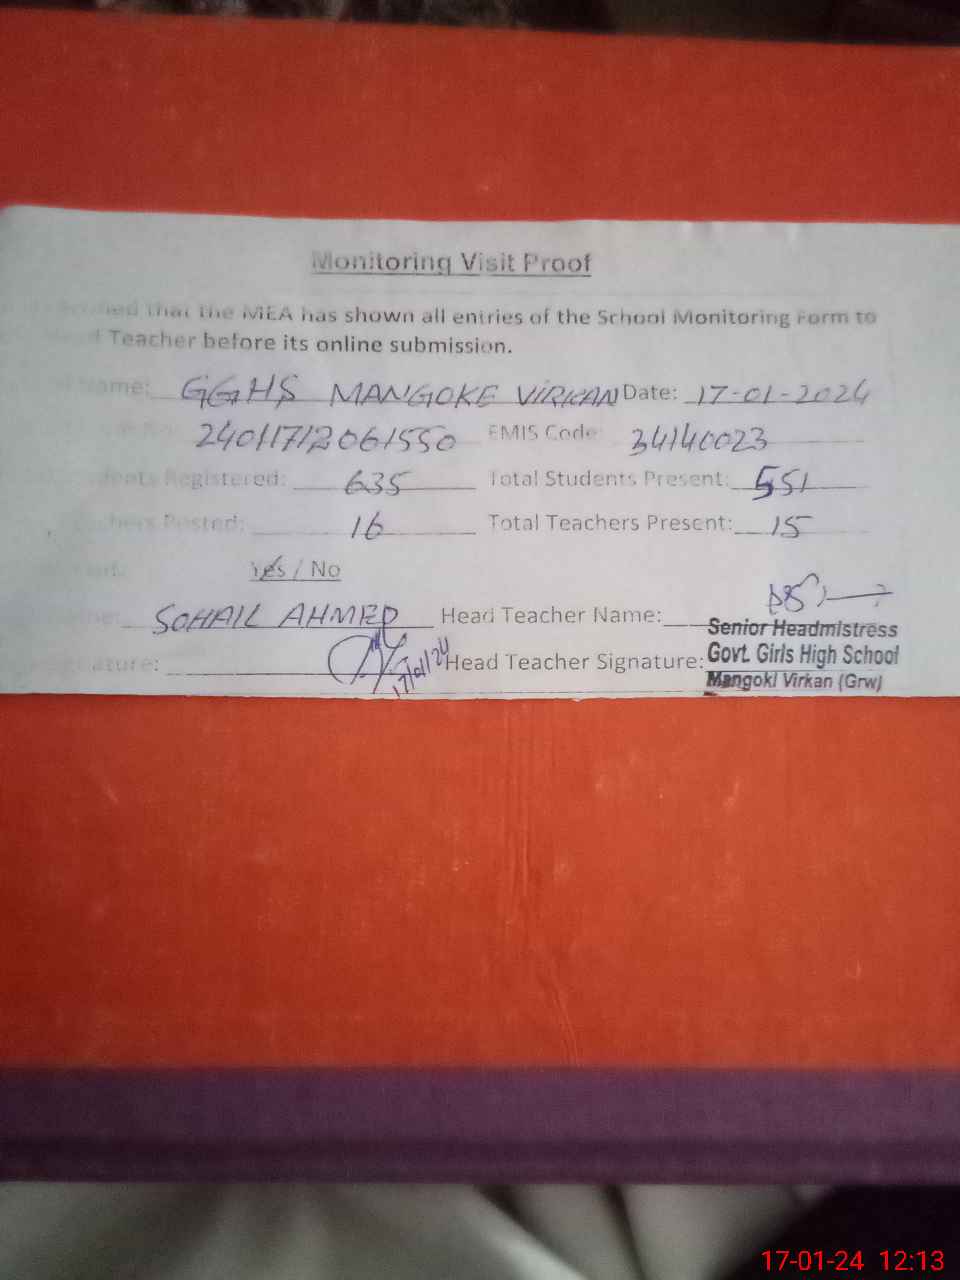 Monitoring Visit Proof
that the MEA has shown all entries of the School Monitoring Form to
Teacher before its online submission.
Name: GGHS MANGOKE VIRKAN Date: 17-01-2024
24011712061550 EMIS Code: 34140023
Registered: 635 Total Students Present: 551
Posted: 16 Total Teachers Present: 15
Yes / No
SOHAIL AHMED Head Teacher Name:
17/01/24 Head Teacher Signature:
Senior Headmistress
Govt. Girls High School
Mangoki Virkan (Grw)
17-01-24 12:13